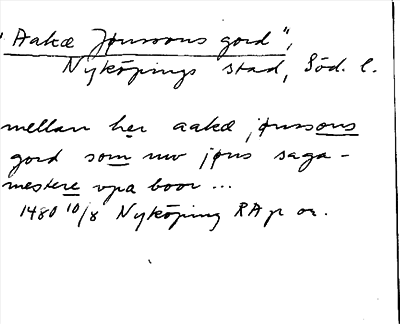 "Aakæ Jønssons gord",
Nyköpings stad, Söd. l.
mellan her aakæ jønssons
gord som nw jøns saga-
mestere vpa boor ...
1480 10/8 Nyköping RA p or.